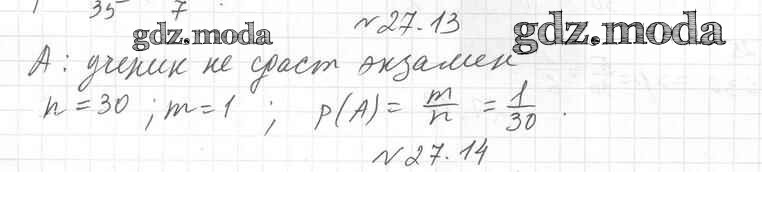 35 7
№27.13
gdz.moda gdz.moda
A: ученик не сдаст экзамен
n = 30 ; m = 1 ; p(A) = m/n = 1/30 .
№27.14